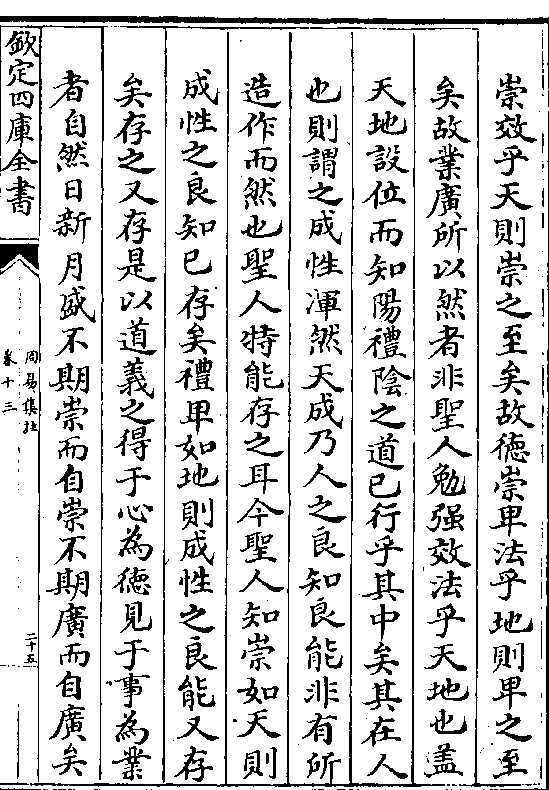 崇效乎天則崇之至矣故德崇卑法乎地則卑之至
矣故業廣所以然者非聖人勉强效法乎天地也盖
天地設位而知陽禮陰之道已行乎其中矣其在人
也則謂之成性渾然天成乃人之良知良能非有所
造作而然也聖人特能存之耳今聖人知崇如天則
成性之良知已存矣禮卑如地則成性之良能又存
矣存之又存是以道義之得于心為德見于事為業
者自然日新月盛不期崇而自崇不期廣而自廣矣
欽定四庫全書
周易集註
卷十三
二十五